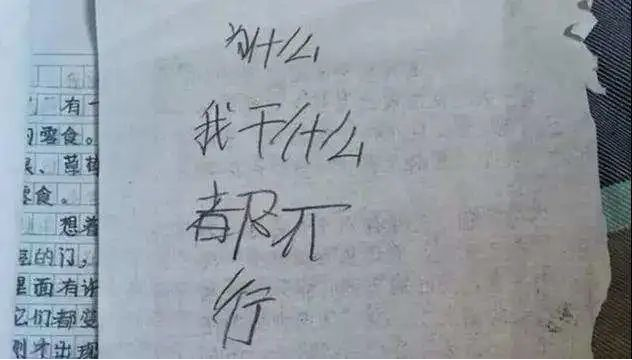 为什么
我干什么
都不
行
有一
零食。
、草莓
零食。
想着
的门,
里面有许
它们都变
别才出现